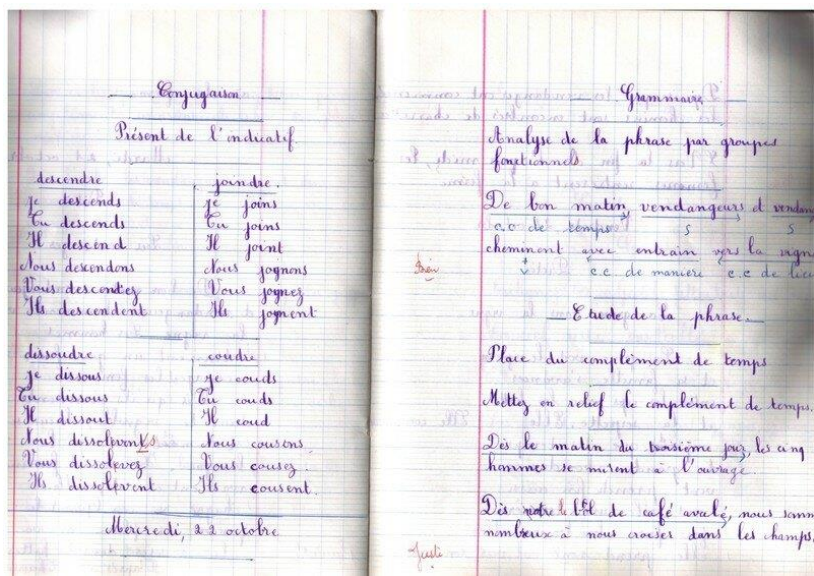 Conjugaison
Présent de l'indicatif.
descendre
je descends
Tu descends
Il descend
Nous descendons
Vous descendez
Ils descendent
joindre.
je joins
Tu joins
Il joint
Nous jognons
Vous jognez
Ils jognent
dissoudre
je dissous
Tu dissous
Il dissout
Nous dissolvent s
Vous dissolevez
Ils dissolevent
coudre
je couds
Tu couds
Il coud
Nous cousons.
Vous cousez.
Ils cousent.
Mercredi, 22 octobre
Grammaire
Analyse de la phrase par groupes
fonctionnels.
De bon matin, vendangeurs et vendan
c.c de temps S S
cheminent avec entrain vers la vign
Bien
v c.c. de manière c.c de lieu
Etude de la phrase.
Place du complément de temps
Mettez en relief le complément de temps.
Dès le matin du troisième jour, les cinq
hommes se mirent à l'ouvrage.
Dès notre bol de café avalé, nous somm
nombreux à nous croiser dans les champs.
Juste